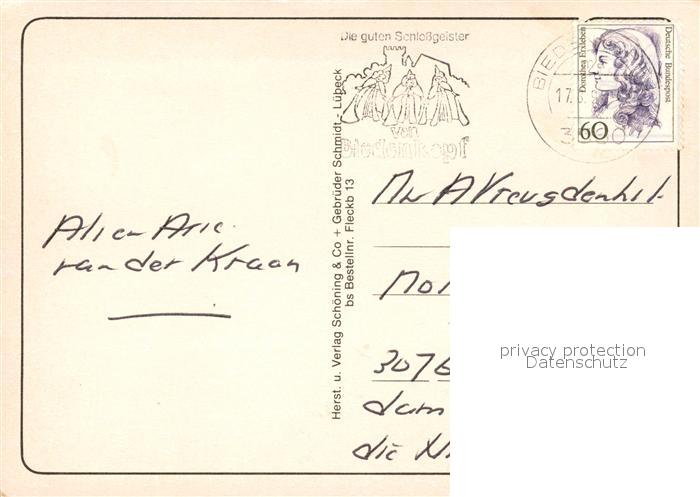 Die guten Schloßgeister
von
Biedenkopf
BIEDE
17.
Dorothea Erxleben
Deutsche Bundespost
60
Herst. u. Verlag Schöning & Co + Gebrüder Schmidt - Lübeck
bs Bestellnr. Fleckb 13
van der Kraan
Mw A Vreugdenhil
3076
dam
die N
privacy protection
Datenschutz